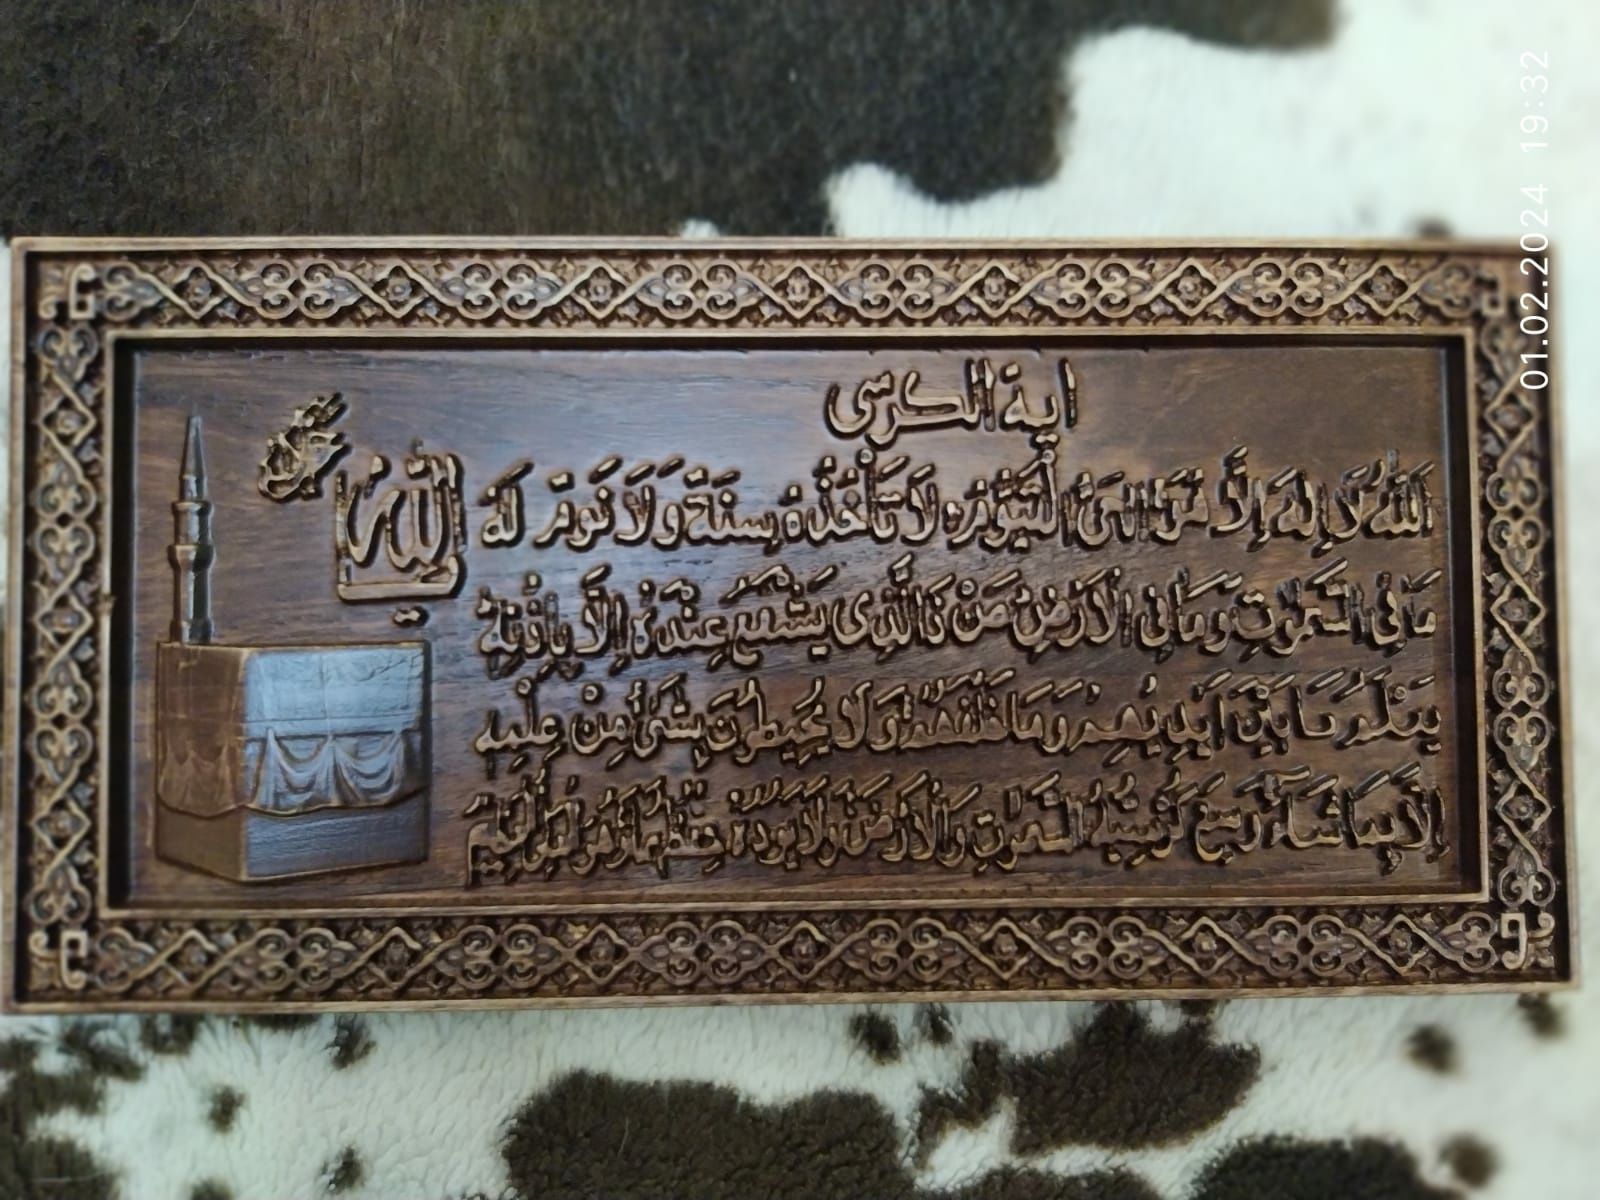 اية الكرسى
اَللّٰهُ لَا اِلٰهَ اِلَّا هُوَ الْحَىُّ الْقَيُّومُ لَا تَأْخُذُهُ سِنَةٌ وَلَا نَوْمٌ لَهُ
مَا فِى السَّمٰوَاتِ وَمَا فِى الْاَرْضِ مَنْ ذَا الَّذِى يَشْفَعُ عِنْدَهُ اِلَّا بِاِذْنِهِ
يَعْلَمُ مَا بَيْنَ اَيْدِيهِمْ وَمَا خَلْفَهُمْ وَلَا يُحِيطُونَ بِشَىْءٍ مِنْ عِلْمِهِ
اِلَّا بِمَا شَاءَ وَسِعَ كُرْسِيُّهُ السَّمٰوَاتِ وَالْاَرْضَ وَلَا يَؤُدُهُ حِفْظُهُمَا وَهُوَ الْعَلِىُّ الْعَظِيمُ
الله
01.02.2024 19:32